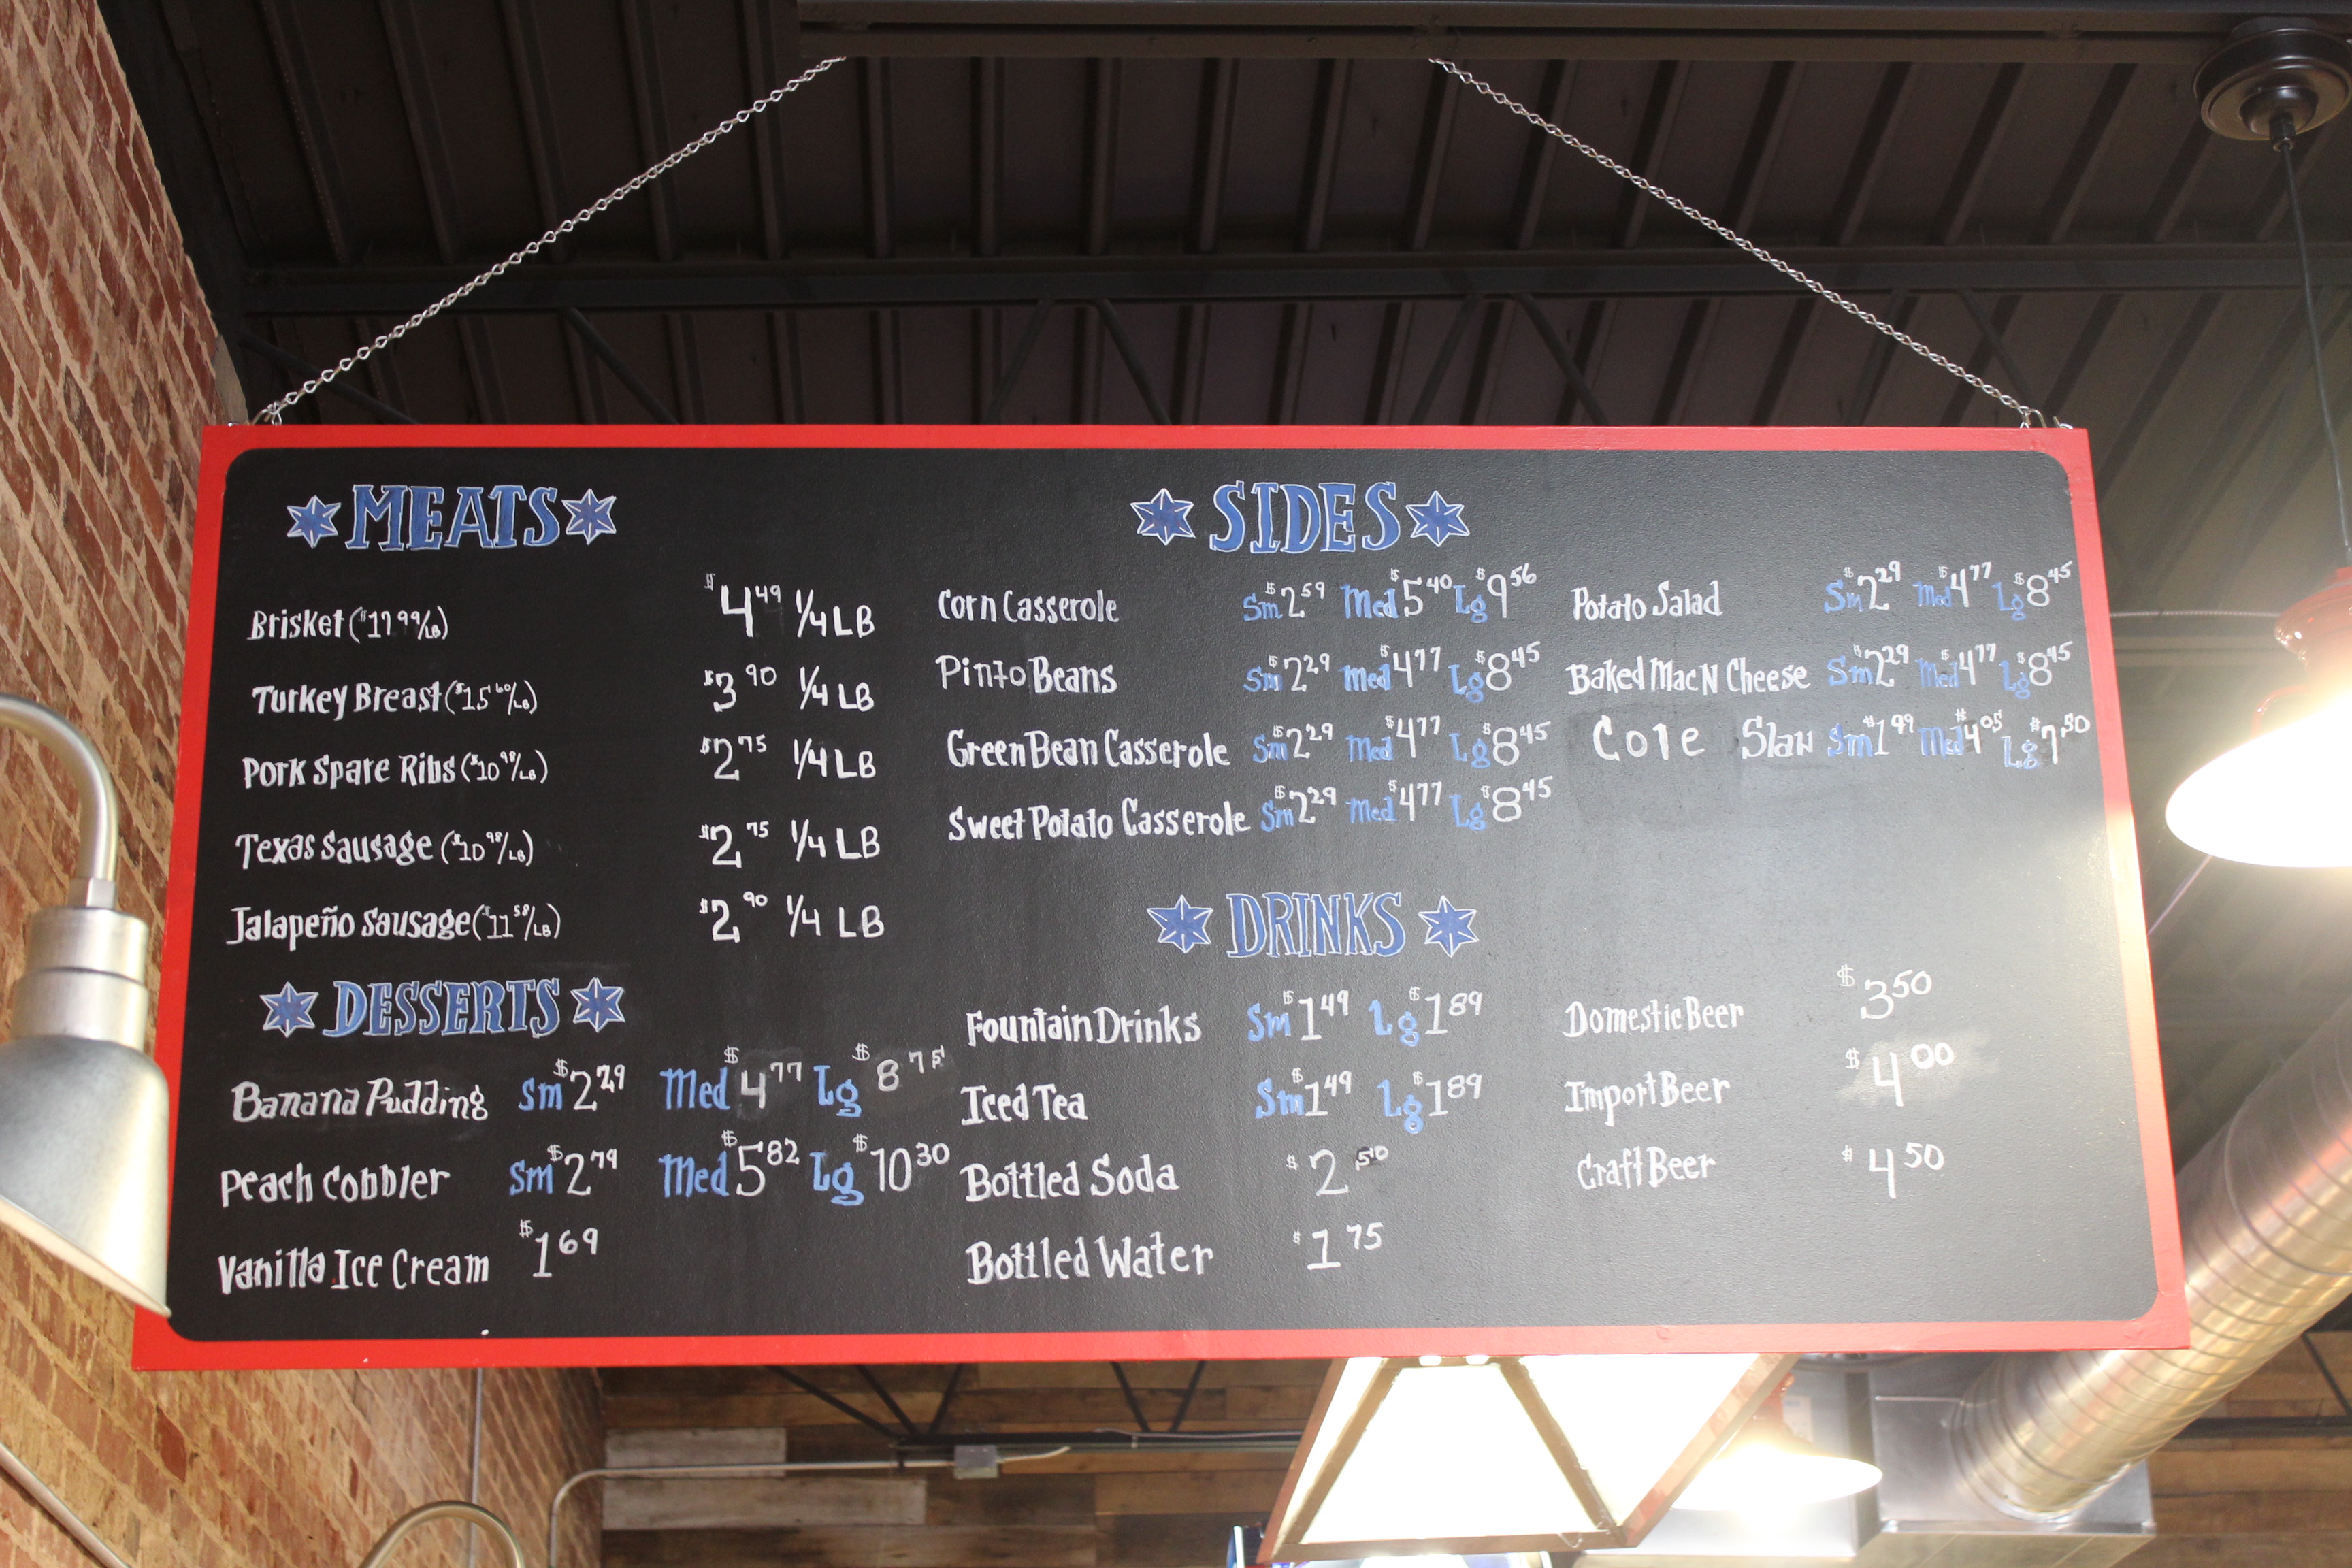 MEATS
Brisket ($17.99/LB) $4.49 1/4 LB
Turkey Breast ($15.60/LB) $3.90 1/4 LB
Pork Spare Ribs ($10.98/LB) $2.75 1/4 LB
Texas Sausage ($10.98/LB) $2.75 1/4 LB
Jalapeño Sausage ($11.58/LB) $2.90 1/4 LB
DESSERTS
Banana Pudding Sm $2.29 Med $4.77 Lg $8.75
Peach Cobbler Sm $2.79 Med $5.82 Lg $10.30
Vanilla Ice Cream $1.69
SIDES
Corn Casserole Sm $2.59 Med $5.40 Lg $9.56
Pinto Beans Sm $2.29 Med $4.77 Lg $8.45
Green Bean Casserole Sm $2.29 Med $4.77 Lg $8.45
Sweet Potato Casserole Sm $2.29 Med $4.77 Lg $8.45
Potato Salad Sm $2.29 Med $4.77 Lg $8.45
Baked Mac N Cheese Sm $2.29 Med $4.77 Lg $8.45
Cole Slaw Sm $1.99 Med $4.05 Lg $7.50
DRINKS
Fountain Drinks Sm $1.49 Lg $1.89
Iced Tea Sm $1.49 Lg $1.89
Bottled Soda $2.50
Bottled Water $1.75
Domestic Beer $3.50
Import Beer $4.00
Craft Beer $4.50